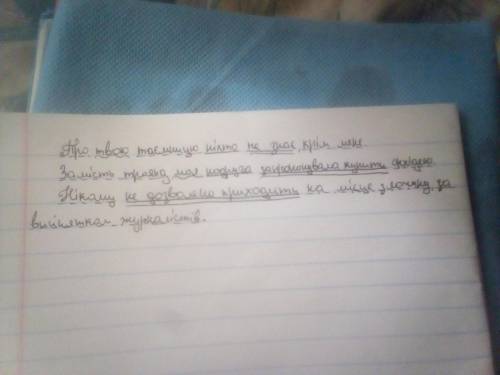 Про твою таємницю ніхто не знає, крім мене
Замість троянд моя подруга запропонувала купити орхідею
Нікому не дозволено приходити на місце злочину, за
винятком журналістів.